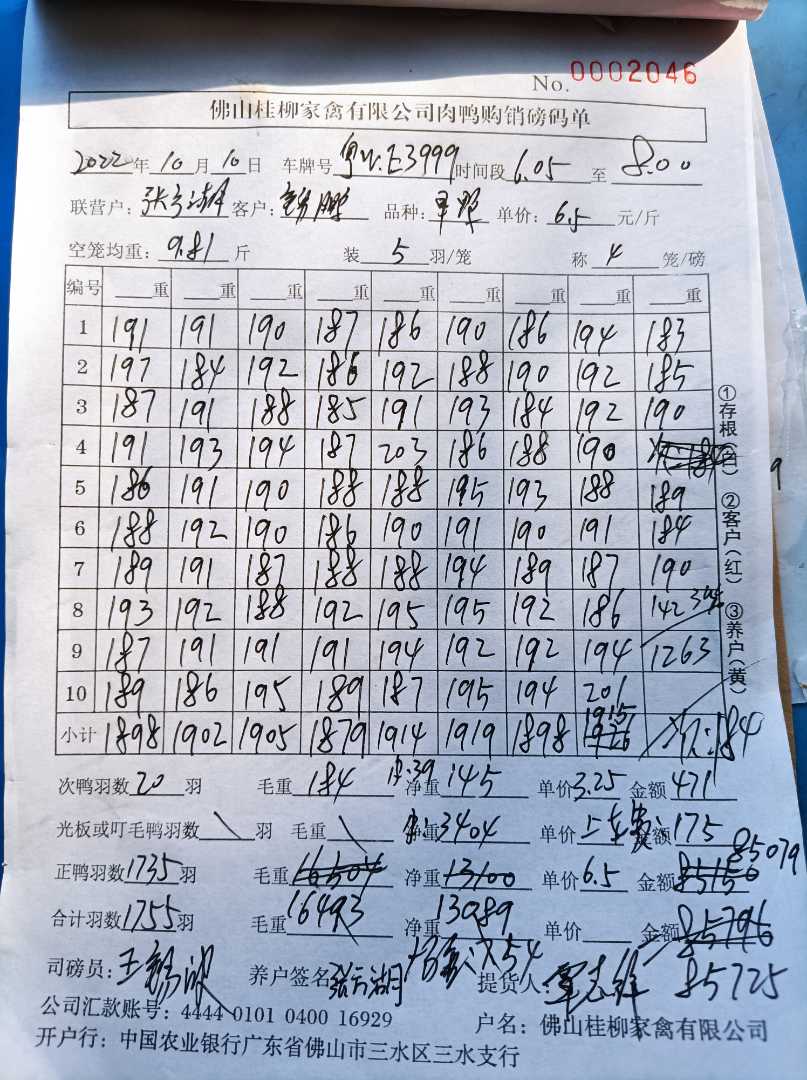 No. 0002046
佛山桂柳家禽有限公司肉鸭购销磅码单
2022年10月10日 车牌号 粤V.E3999 时间段 6.05 至 8.00
联营户: 客户: 鹏 品种: 单价: 6.5 元/斤
空笼均重: 9.81 斤 装 5 羽/笼 称 4 笼/磅
编号 重 重 重 重 重 重 重 重 重
1 191 191 190 187 186 190 186 194 183
2 197 184 192 186 192 188 190 192 185
3 187 191 188 185 191 193 184 192 190
4 191 193 194 187 203 186 188 190
5 186 191 190 188 188 195 193 188 189
6 188 192 190 186 190 191 190 191 184
7 189 191 187 188 188 194 189 187 190
8 193 192 188 192 195 195 192 186 142
9 187 191 191 191 194 192 192 194 1263
10 189 186 195 189 187 195 194 201
小计 1898 1902 1905 1879 1914 1919 1898 1915 次:184
次鸭羽数 20 羽 毛重 184 皮:39 净重 145 单价 3.25 金额 471
光板或叮毛鸭羽数 羽 毛重 净重 3404 上车费 金额 175
正鸭羽数 1735 羽 毛重 16504 净重 13100 单价 6.5 金额 85150 85079
合计羽数 1755 羽 毛重 16493 净重 13089 单价 金额
司磅员: 王 养户签名 张 提货人: 覃志 85725
公司汇款账号: 4444 0101 0400 16929 户名: 佛山桂柳家禽有限公司
开户行: 中国农业银行广东省佛山市三水区三水支行
①存根(白) ②客户(红) ③养户(黄)